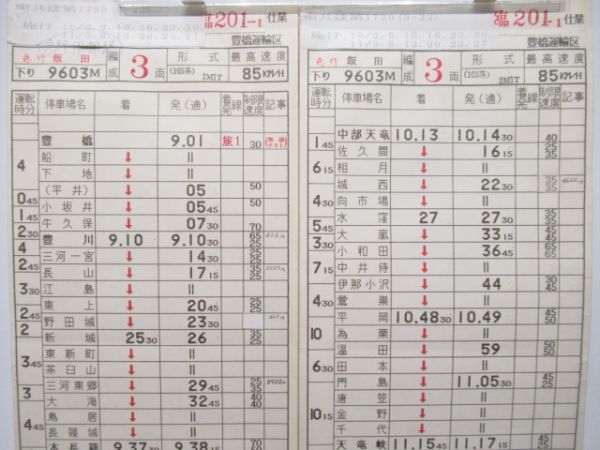 臨201-1 仕業
豊橋運輸区
急行 飯田
下り 9603M
編成 3両
形式 (165系) 2M1T
最高速度 85KM/H
運転時分 停車場名 着 発(通) 着発線 制限速度 記事
豊橋 9.01 旅1 30
船町 ↓ 〃
4 下地 ↓ 〃
(平井) ↓ 05 50
0 45 小坂井 ↓ 05 45 50
2 牛久保 ↓ 07 30 70
2 30 豊川 9.10 9.10 30 65 25
4 三河一宮 ↓ 14 30 25
2 45 長山 ↓ 17 15 35 25
江島 ↓ 〃
3 30 東上 ↓ 20 45 25
2 45 野田城 ↓ 23 30
2 新城 25 30 26 35 25
東新町 ↓ 〃
茶臼山 ↓ 〃
三河東郷 ↓ 29 45 25 35
3 大海 ↓ 32 45 40 40
鳥居 ↓ 〃
4 45 長篠城 ↓ 〃
本長篠 9.37 30 9.38 15 70
臨201-1 仕業
豊橋運輸区
急行 飯田
下り 9603M
編成 3両
形式 (165系) 2M1T
最高速度 85KM/H
運転時分 停車場名 着 発(通) 着発線 制限速度 記事
中部天竜 10.13 10.14 30 40
1 45 佐久間 ↓ 16 15 25 35
6 15 相月 ↓ 〃
城西 ↓ 22 30 35
4 30 向市場 ↓ 〃
水窪 27 27 30 35
5 45 大嵐 ↓ 33 15 35 45
3 30 小和田 ↓ 36 45 65 65
7 15 中井侍 ↓ 〃
伊那小沢 ↓ 44 30 45
4 30 鶯巣 ↓ 〃
平岡 10.48 30 10.49 45 50
10 為栗 ↓ 〃
温田 ↓ 59 50 50
6 30 田本 ↓ 〃
門島 ↓ 11.05 30 45 25
唐笠 ↓ 〃
10 15 金野 ↓ 〃
千代 ↓ 〃
天竜峡 11.15 45 11.17 15 45 25